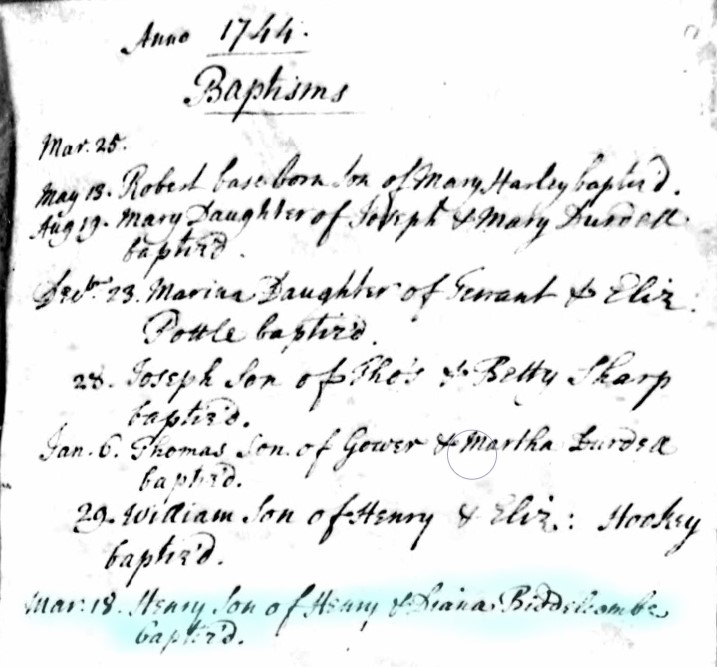 Anno 1744.
Baptisms
Mar. 25.
May 13. Robert base born Son of Mary Harley baptiz'd.
Aug 19. Mary Daughter of Joseph & Mary Durdell
baptiz'd.
Decbr 23. Marina Daughter of & Eliz:
Pottle baptiz'd.
28. Joseph Son of Tho's & Betty Sharp
baptiz'd.
Jan. 6. Thomas Son of Gower & Martha
baptiz'd.
29. William Son of Henry & Eliz: Hookey
baptiz'd.
Mar: 18. Henry Son of Henry & Diana Biddlecombe
baptiz'd.